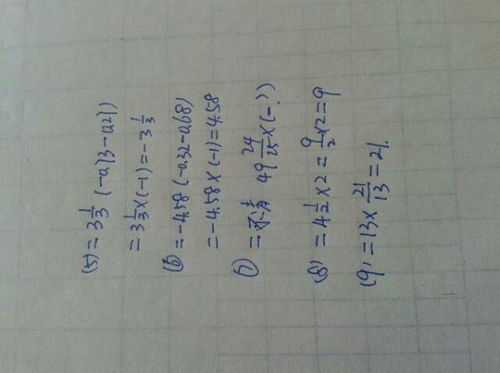 (5) = 3 1/3 (-0.73-0.27)
= 3 1/3 × (-1) = -3 1/3
(6) = -4.58 (-0.32-0.68)
= -4.58 × (-1) = 4.58
(7) = 49 24/25 × (-?)
(8) = 4 1/2 × 2 = 9/2 × 2 = 9
(9) = 13 × 21/13 = 21.